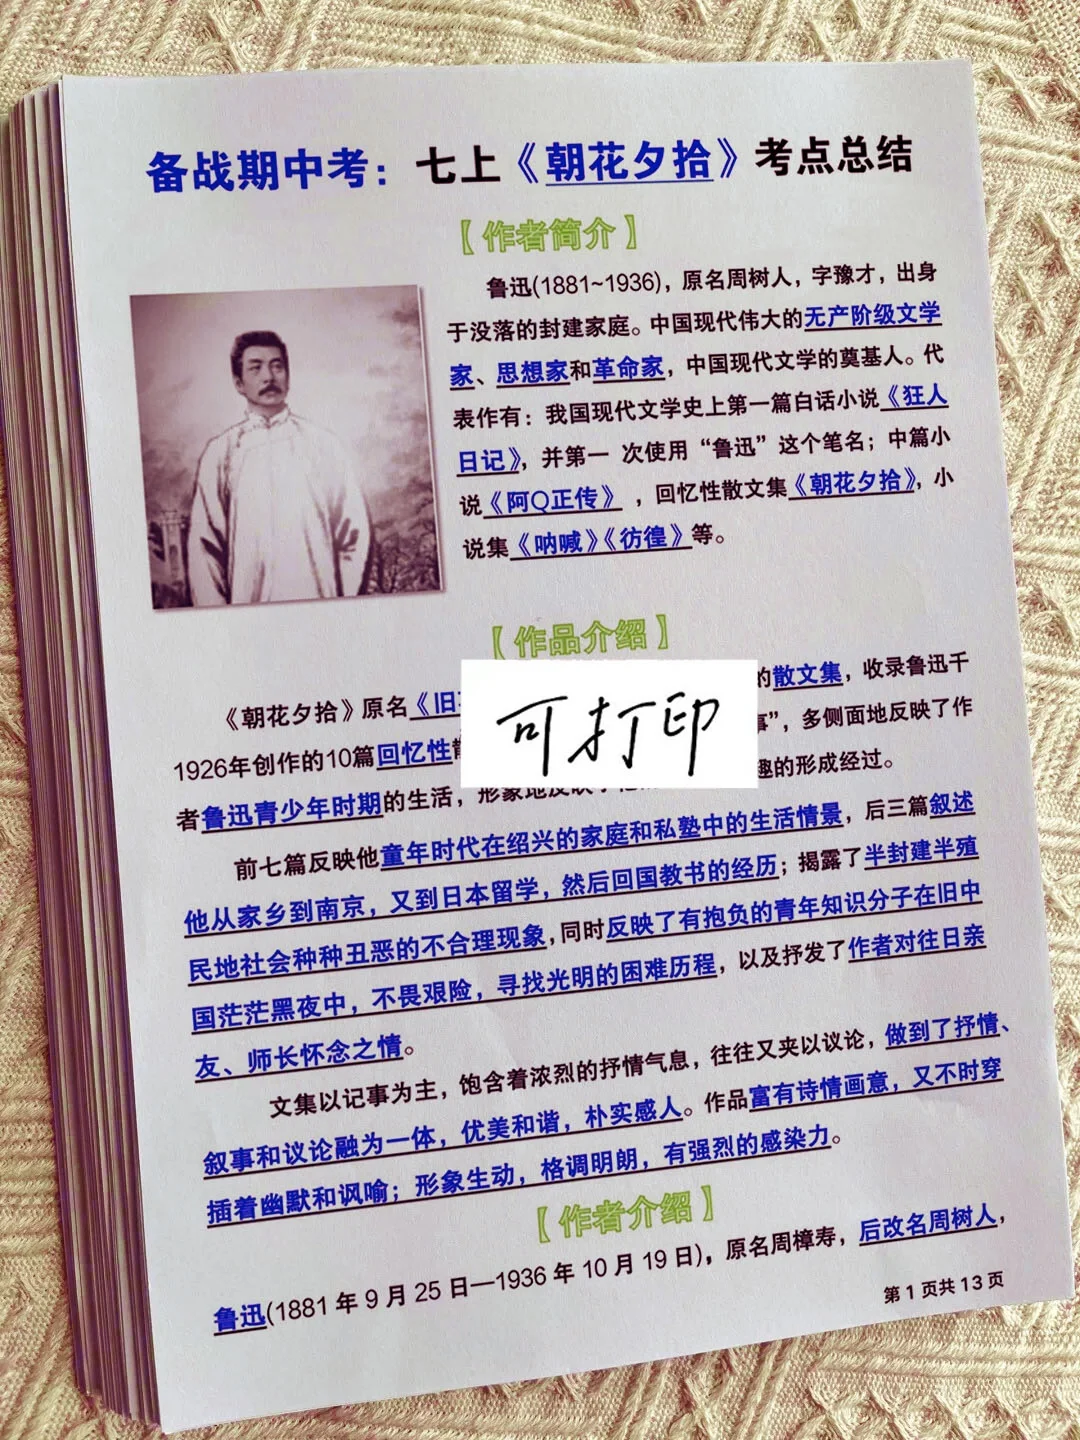 备战期中考：七上《朝花夕拾》考点总结
【作者简介】
鲁迅(1881~1936)，原名周树人，字豫才，出身
于没落的封建家庭。中国现代伟大的无产阶级文学
家、思想家和革命家，中国现代文学的奠基人。代
表作有：我国现代文学史上第一篇白话小说《狂人
日记》，并第一 次使用“鲁迅”这个笔名；中篇小
说《阿Q正传》 ，回忆性散文集《朝花夕拾》，小
说集《呐喊》《彷徨》等。
【作品介绍】
《朝花夕拾》原名《旧 的散文集，收录鲁迅千
可打印
1926年创作的10篇回忆性 事”，多侧面地反映了作
者鲁迅青少年时期的生活，形象地反映了 趣的形成经过。
前七篇反映他童年时代在绍兴的家庭和私塾中的生活情景，后三篇叙述
他从家乡到南京，又到日本留学，然后回国教书的经历；揭露了半封建半殖
民地社会种种丑恶的不合理现象,同时反映了有抱负的青年知识分子在旧中
国茫茫黑夜中，不畏艰险，寻找光明的困难历程，以及抒发了作者对往日亲
友、师长怀念之情。
文集以记事为主，饱含着浓烈的抒情气息，往往又夹以议论，做到了抒情、
叙事和议论融为一体，优美和谐，朴实感人。作品富有诗情画意，又不时穿
插着幽默和讽喻；形象生动，格调明朗，有强烈的感染力。
【作者介绍】
鲁迅(1881 年 9 月 25 日—1936 年 10 月 19 日)，原名周樟寿，后改名周树人，
第 1 页共 13 页